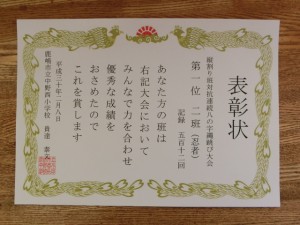 表彰状
縦割り班対抗連続八の字縄跳び大会
第一位 二班(忍者)
記録 五百十二回
あなた方の班は
右記大会において
みんなで力を合わせ
優秀な成績を
おさめたので
これを賞します
平成三十年二月八日
鹿嶋市立中野西小学校